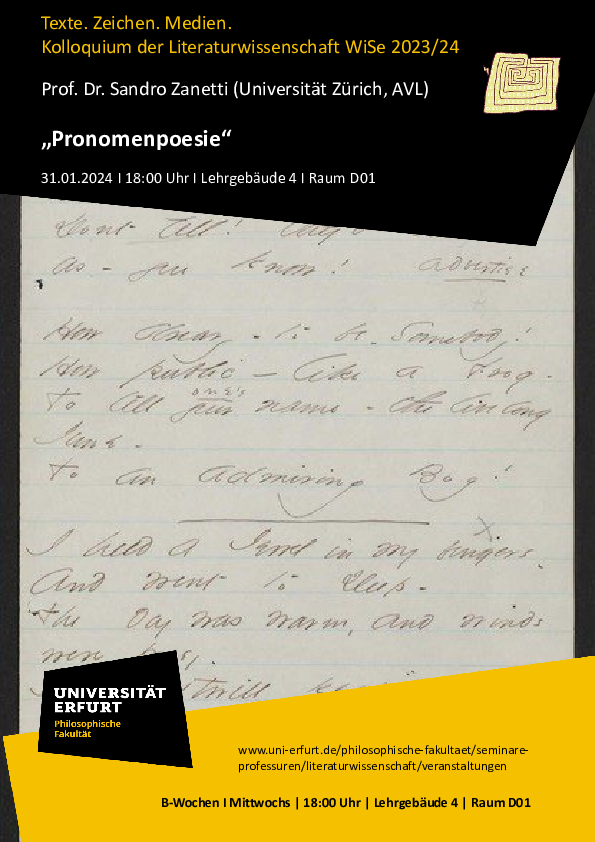 Texte. Zeichen. Medien.
Kolloquium der Literaturwissenschaft WiSe 2023/24
Prof. Dr. Sandro Zanetti (Universität Zürich, AVL)
„Pronomenpoesie“
31.01.2024 I 18:00 Uhr I Lehrgebäude 4 I Raum D01
Dont tell!
as - you know! advertise
How dreary - to be - Somebody!
How public - like a Frog -
To tell your one's name - the livelong
June -
To an admiring Bog!
I held a Jewel in my fingers
And went to sleep -
The day was warm, and winds
were
UNIVERSITÄT
ERFURT
Philosophische
Fakultät
www.uni-erfurt.de/philosophische-fakultaet/seminare-
professuren/literaturwissenschaft/veranstaltungen
B-Wochen I Mittwochs | 18:00 Uhr | Lehrgebäude 4 | Raum D01